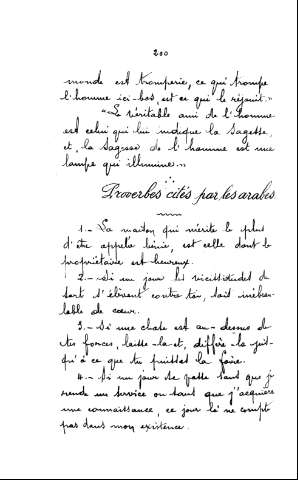 200
monde est tromperie, ce qui trompe
l'homme ici-bas, est ce qui le réjouit."
"Le véritable ami de l'homme
est celui qui lui indique la Sagesse,
et, la Sagesse de l'homme est une
lampe qui illumine."
Proverbes cités par les arabes
1.- La maison qui mérite le plus
d'être appelée bénie, est celle dont le
propriétaire est heureux.
2.- Si un jour les vicissitudes du
sort s'élèvent contre toi, sois inébran-
lable de cœur.
3.- Si une chose est au-dessus de
tes forces, laisse-la et, diffère-la jus-
qu'à ce que tu puisses la faire.
4.- Si un jour se passe sans que je
rende un service ou sans que j'acquière
une connaissance, ce jour là ne compte
pas dans mon existence.